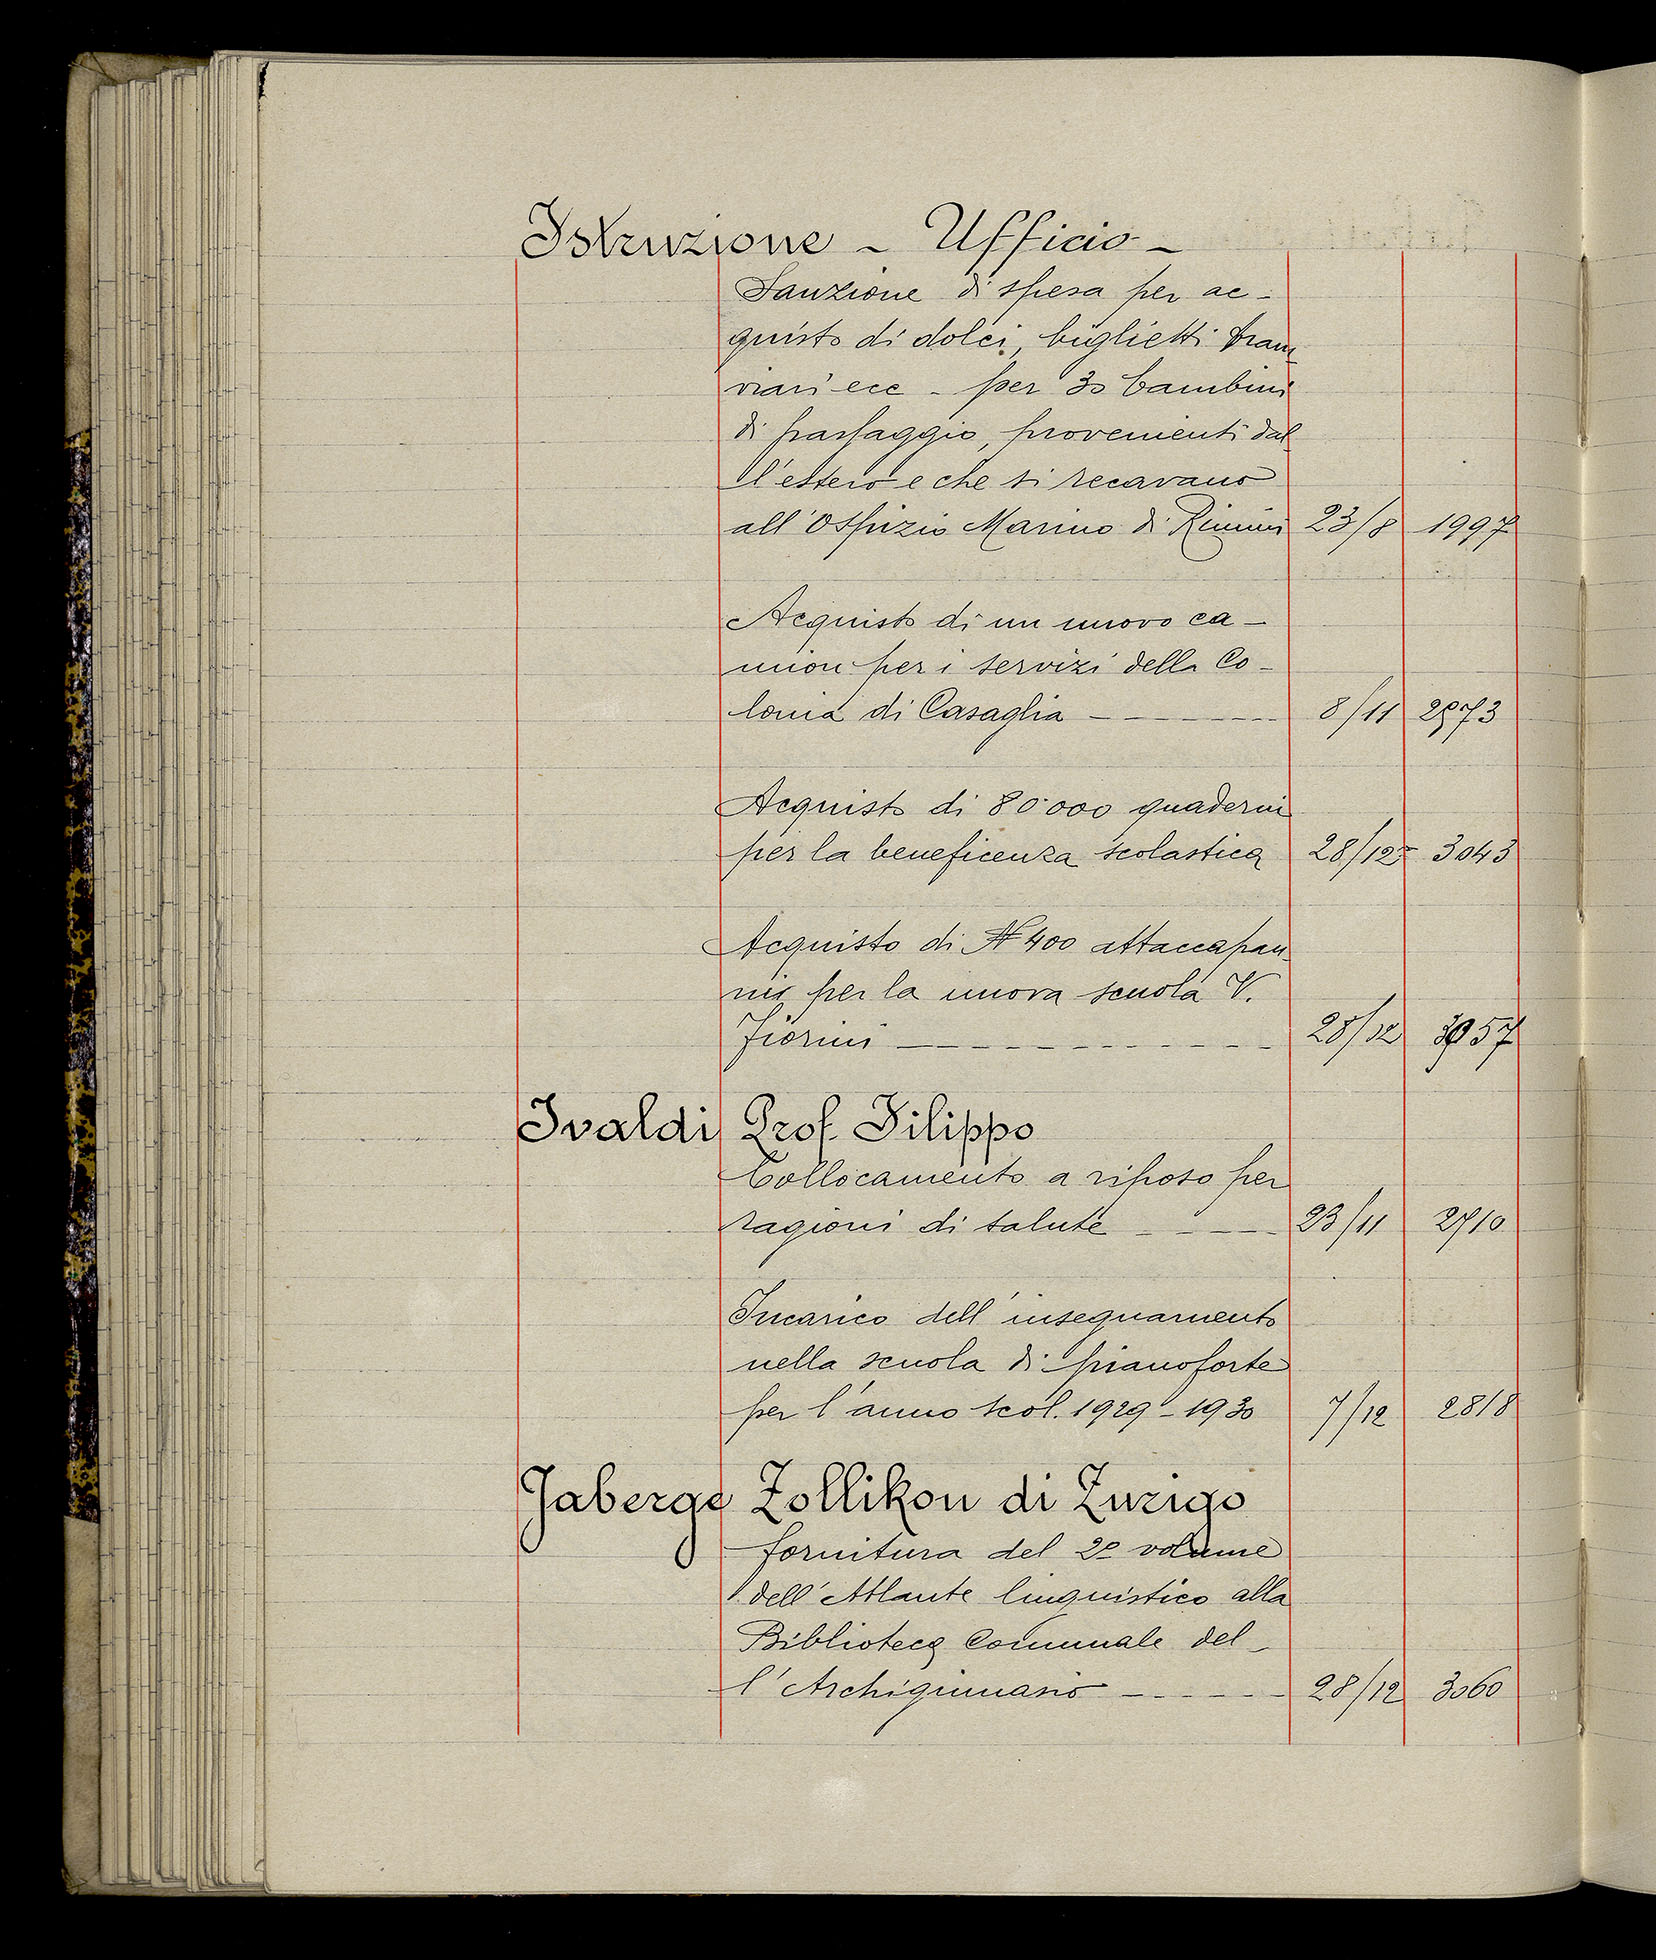 Istruzione - Ufficio -
Sanzione di spesa per ac-
quisto di dolci, biglietti tram
viari ecc - per 30 bambini
di passaggio, provenienti dal
l'estero e che si recavano
all'Ospizio Marino di Rimini 23/8 1997
Acquisto di un nuovo ca-
mion per i servizi della Co-
lonia di Casaglia - - - - - - 8/11
Acquisto di 80.000 quaderni
per la beneficenza scolastica 28/12 3043
Acquisto di N 400 attaccapan
ni per la nuova scuola V.
Fiorini - - - - - - - - 28/12 3057
Ivaldi Prof. Filippo
Collocamento a riposo per
ragioni di salute - - - - 23/11 2710
Incarico dell'insegnamento
nella scuola di pianoforte
per l'anno scol. 1929-1930 7/12 2818
Jaberge Zollikon di Zurigo
fornitura del 2º volume
dell'Atlante linguistico alla
Biblioteca Comunale del-
l'Archiginnasio - - - - - 28/12 3060